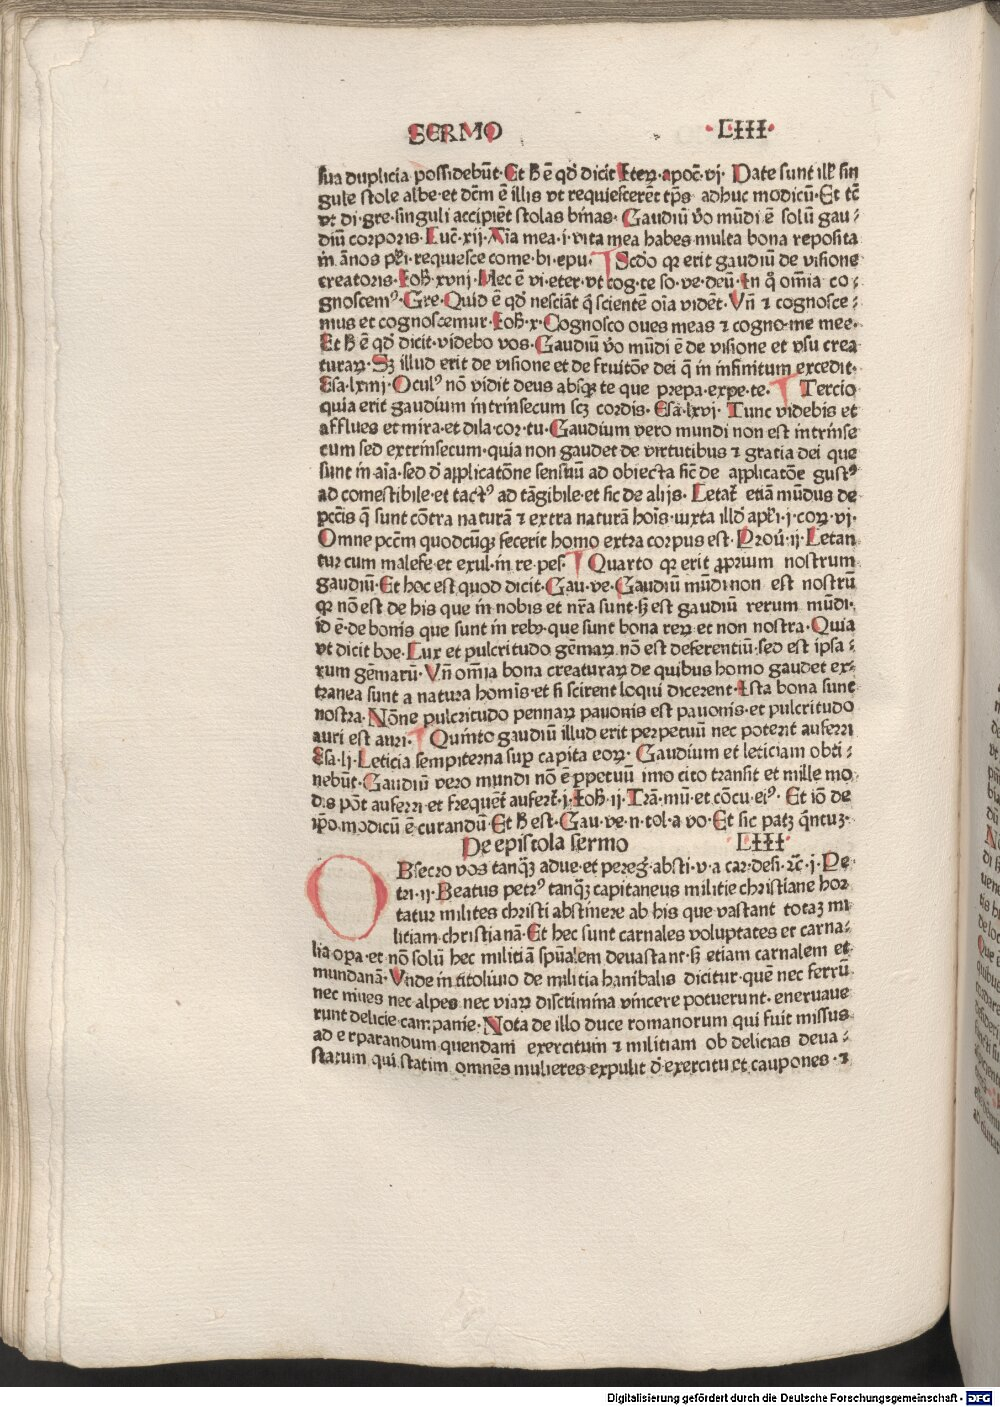 SERMO LIII
sua duplicia possidebūt. Et ħ ē qđ dicit Iteꝝ apoč. vj. Date sunt illꝭ sin
gule stole albe. et dčm ē illis vt requiescerēt tp̄s adhuc modicū. Et tē
vt di. gre. singuli accipiēt stolas bīnas. Gaudiū v̊o mūdi ē solū gau⸗
diū corporis. Luč. xij. Aīa mea .i. vita mea habes multa bona reposita
in ānos pl̄i. requiesce come. bi. epu. Scd̄o qꝛ erit gaudiū de visione
creatoris. Ioħ. xvnj. Hec ē vi. eter. vt cog. te so. ve. deū. In q̊ om̄ia co⸗
gnoscemꝰ. Gre. Quid ē qđ nesciāt q̄ scientē oīa vidēt. Vn̄ ⁊ cognosce⸗
mus et cognoscemur. Ioħ. x. Cognosco oues meas ⁊ cogno. me mee.
Et ħ ē qđ dicit. videbo vos. Gaudiū v̊o mūdi ē de visione et vsu crea
turaꝝ. Sꝫ illud erit de visione et de fruitōne dei q̄ in infinitum excedit.
Esa. lxiiij. Oculꝰ nō vidit deus absqꝫ te que prepa. expe. te. Tercio
quia erit gaudium intrinsecum scꝫ cordis. Esā. lxvj. Tunc videbis et
afflues et mira. et dila. cor. tu. Gaudium vero mundi non est intrinse
cum sed extrinsecum. quia non gaudet de virtutibus ⁊ gratia dei que
sunt in aīa. sed d̄ applicatōne sensuū ad obiecta sic̄ de applicatōe gustꝰ
ad comestibile. et tactꝰ ad tāgibile. et sic de alijs. Letat̄ etiā mūdus de
pcc̄is q̄ sunt cōtra naturā ⁊ extra naturā hoīs. iuxta illđ apl̄i. j. coꝝ. vj.
Omne pcc̄m quodcūqꝫ fecerit homo extra corpus est. Prou̇. ij. Letan
tur cum malefe. et exul. in re. pes. Quarto qꝛ erit ꝓprium nostrum
gaudiū. Et hoc est quod dicit. Gau. ve. Gaudiū mūdi non est nostrū
qꝛ nō est de his que in nobis et nr̄a sunt. sꝫ est gaudiū rerum mūdi.
id ē. de bonis que sunt in rebꝫ. que sunt bona reꝝ et non nostra. Quia
vt dicit boe. Lux et pulcritudo gēmaꝝ nō est deferentiū. sed est ipsa⸗
rum gēmarū. Vn̄ om̄ia bona creaturaꝝ de quibus homo gaudet ex⸗
tranea sunt a natura homīs. et si scirent loqui dicerent. Ista bona sunt
nostra. Nōne pulcritudo pennaꝝ pauonis est pauonis. et pulcritudo
auri est auri. Quinto gaudiū illud erit perpetuū nec poterit auferri
Esa. lj. Leticia sempiterna suꝑ capita eoꝝ. Gaudium et leticiam obti⸗
nebūt. Gaudiū vero mundi nō ē ꝑpetuū imo cito transit et mille mo
dis pōt auferri. et frequēt̄ aufert̄. j. Ioħ. ij. Trā. mū. et cōcu. eiꝰ. Et iō de
ip̄o modicū ē curandū. Et ħ est. Gau. ve. n. tol. a vo. Et sic patꝫ q̄ntuꝫ.
De epistola sermo LIII.
OBsecro vos tanqꝫ̄ adue. et pereg̃. absti. v. a car. desi. ⁊c̄. j. Pe⸗
tri. ij. Beatus petrꝰ tanqꝫ̄ capitaneus militie christiane hor
tatur milites christi abstinere ab his que vastant totaꝫ mi
litiam christianā. Et hec sunt carnales voluptates et carna⸗
lia oꝑa. et nō solū hec militiā spūalem deuastant. sꝫ etiam carnalem et
mundanā. Vnde in titoliuio de militia hanibalis dicitur. quē nec ferrū
nec niues nec alpes nec viaꝝ discrimina vincere potuerunt. eneruaue
runt delicie campanie. Nota de illo duce romanorum qui fuit missus
ad erparandum quendam exercitum ⁊ militiam ob delicias deua⸗
starum qui statim omnēs mulieres expulit d̄ exercitu et caupones. ⁊
Digitalisierung gefördert durch die Deutsche Forschungsgemeinschaft - DFG